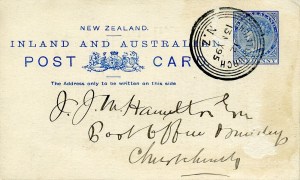 NEW ZEALAND.
INLAND AND AUSTRALI
POST CAR
The Address only to be written on this side
J. J. M. Hamilton Esq
Post Office
Christchurch